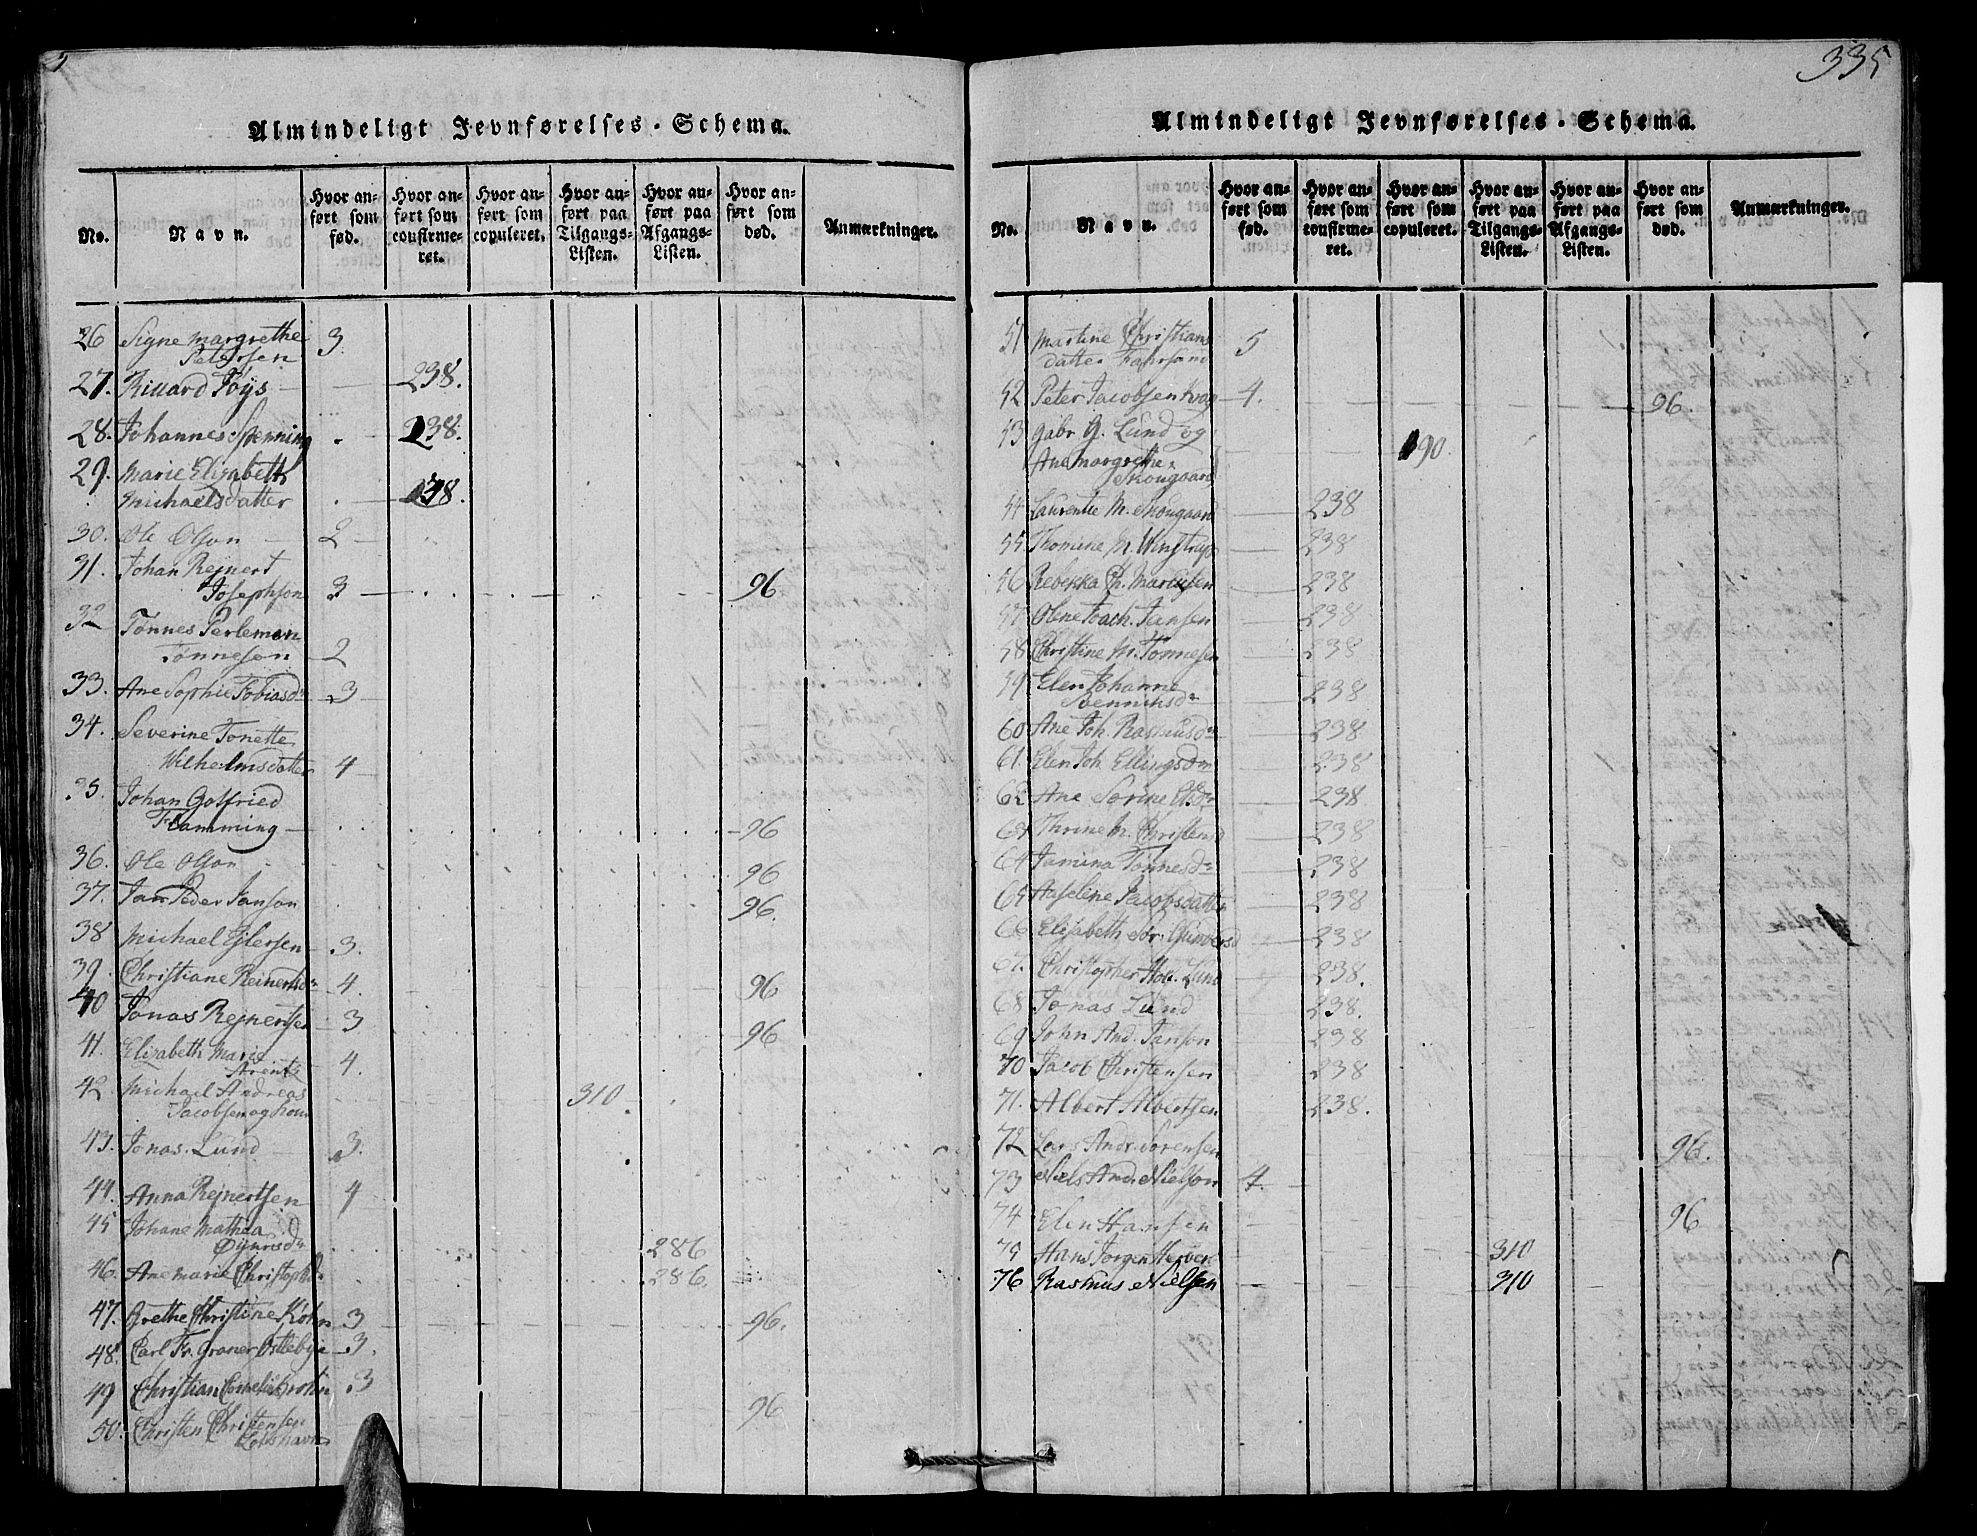 335
Almindeligt Jevnførelses-Schema.
No.
Navn.
Hvor anført som fød.
Hvor anført som confirmeret.
Hvor anført som copuleret.
Hvor anført paa Tilgangs-Listen.
Hvor anført paa Afgangs-Listen.
Hvor anført som død.
Anmærkninger.
26 Signe Margrethe
Petersen 3.
27. Rikard Föys - 238.
28. Johannes Spenning 238.
29. Marie Elizabeth
Michaelsdatter 238.
30. Ole Olson 2
31. Johan Rejnert
Josephson 3 96
32 Tønnes Perleman
Tønnesen 2
33. Ane Sophie Tobiasd 3
34. Severine Tonette
Wilhelmsdatter 4
35. Johan Gotfried
Flamming 96
36. Ole Olson 96
37. Jan Peder Janson 96.
38 Michael Ejlersen 3.
39. Christiane Reinertsd 4. 96
40 Jonas Rejnertsen 3 96
41. Elizabeth Marie
Arentz 4.
42 Michael Andreas
Jacobsen og Kone 310.
43. Jonas Lund 3.
44. Anna Rejnertsen 4
45 Johane Mathea
286
46. Ane Marie Christophd 286.
47. Grethe Christine Køhn 3 96.
48. Carl Fr. Graner Ostebye 3.
49 Christian Cornelius 3
50. Christen Christensen 96
Almindeligt Jevnførelses-Schema.
No.
Navn.
Hvor anført som fød.
Hvor anført som confirmeret.
Hvor anført som copuleret.
Hvor anført paa Tilgangs-Listen.
Hvor anført paa Afgangs-Listen.
Hvor anført som død.
Anmærkninger.
51 Martine Christians
datter Fahrsund 5
52 Peter Jacobsen 4. 96.
53 Gabr. G. Lund og
Ane Margrethe
Skougaard 190.
54 Laurentie M. Skougaard 238
55. Thomine M. Winstrup 238
56 Rebekka Ch. Marcusen 238
57 Olene Joach. Jansen 238
58 Christine M. Tønnesen 238
59 Elen Johanne
238
60 Ane Joh. Rasmusd 238
61. Elen Joh. Ellingsd 238
62 Ane Sorine 238
63 Thrine M. Christensd 238
64 Jamina Tønnesd 238
65 Aseline Jacobsdatter 238
66 Elisabeth Sør. Gunversd 238
67. Christopher Lund 238.
68 Jonas Lund 238.
69 John And. Janson 238
70 Jacob Christensen 238
71. Albert Albertsen 238.
72 Lars Andr. Sørensen 96.
73 Niels And. Nielson 4.
74 Elen Hansen 96
75 Hans Jørgen 310
76 Rasmus Nielsen 310